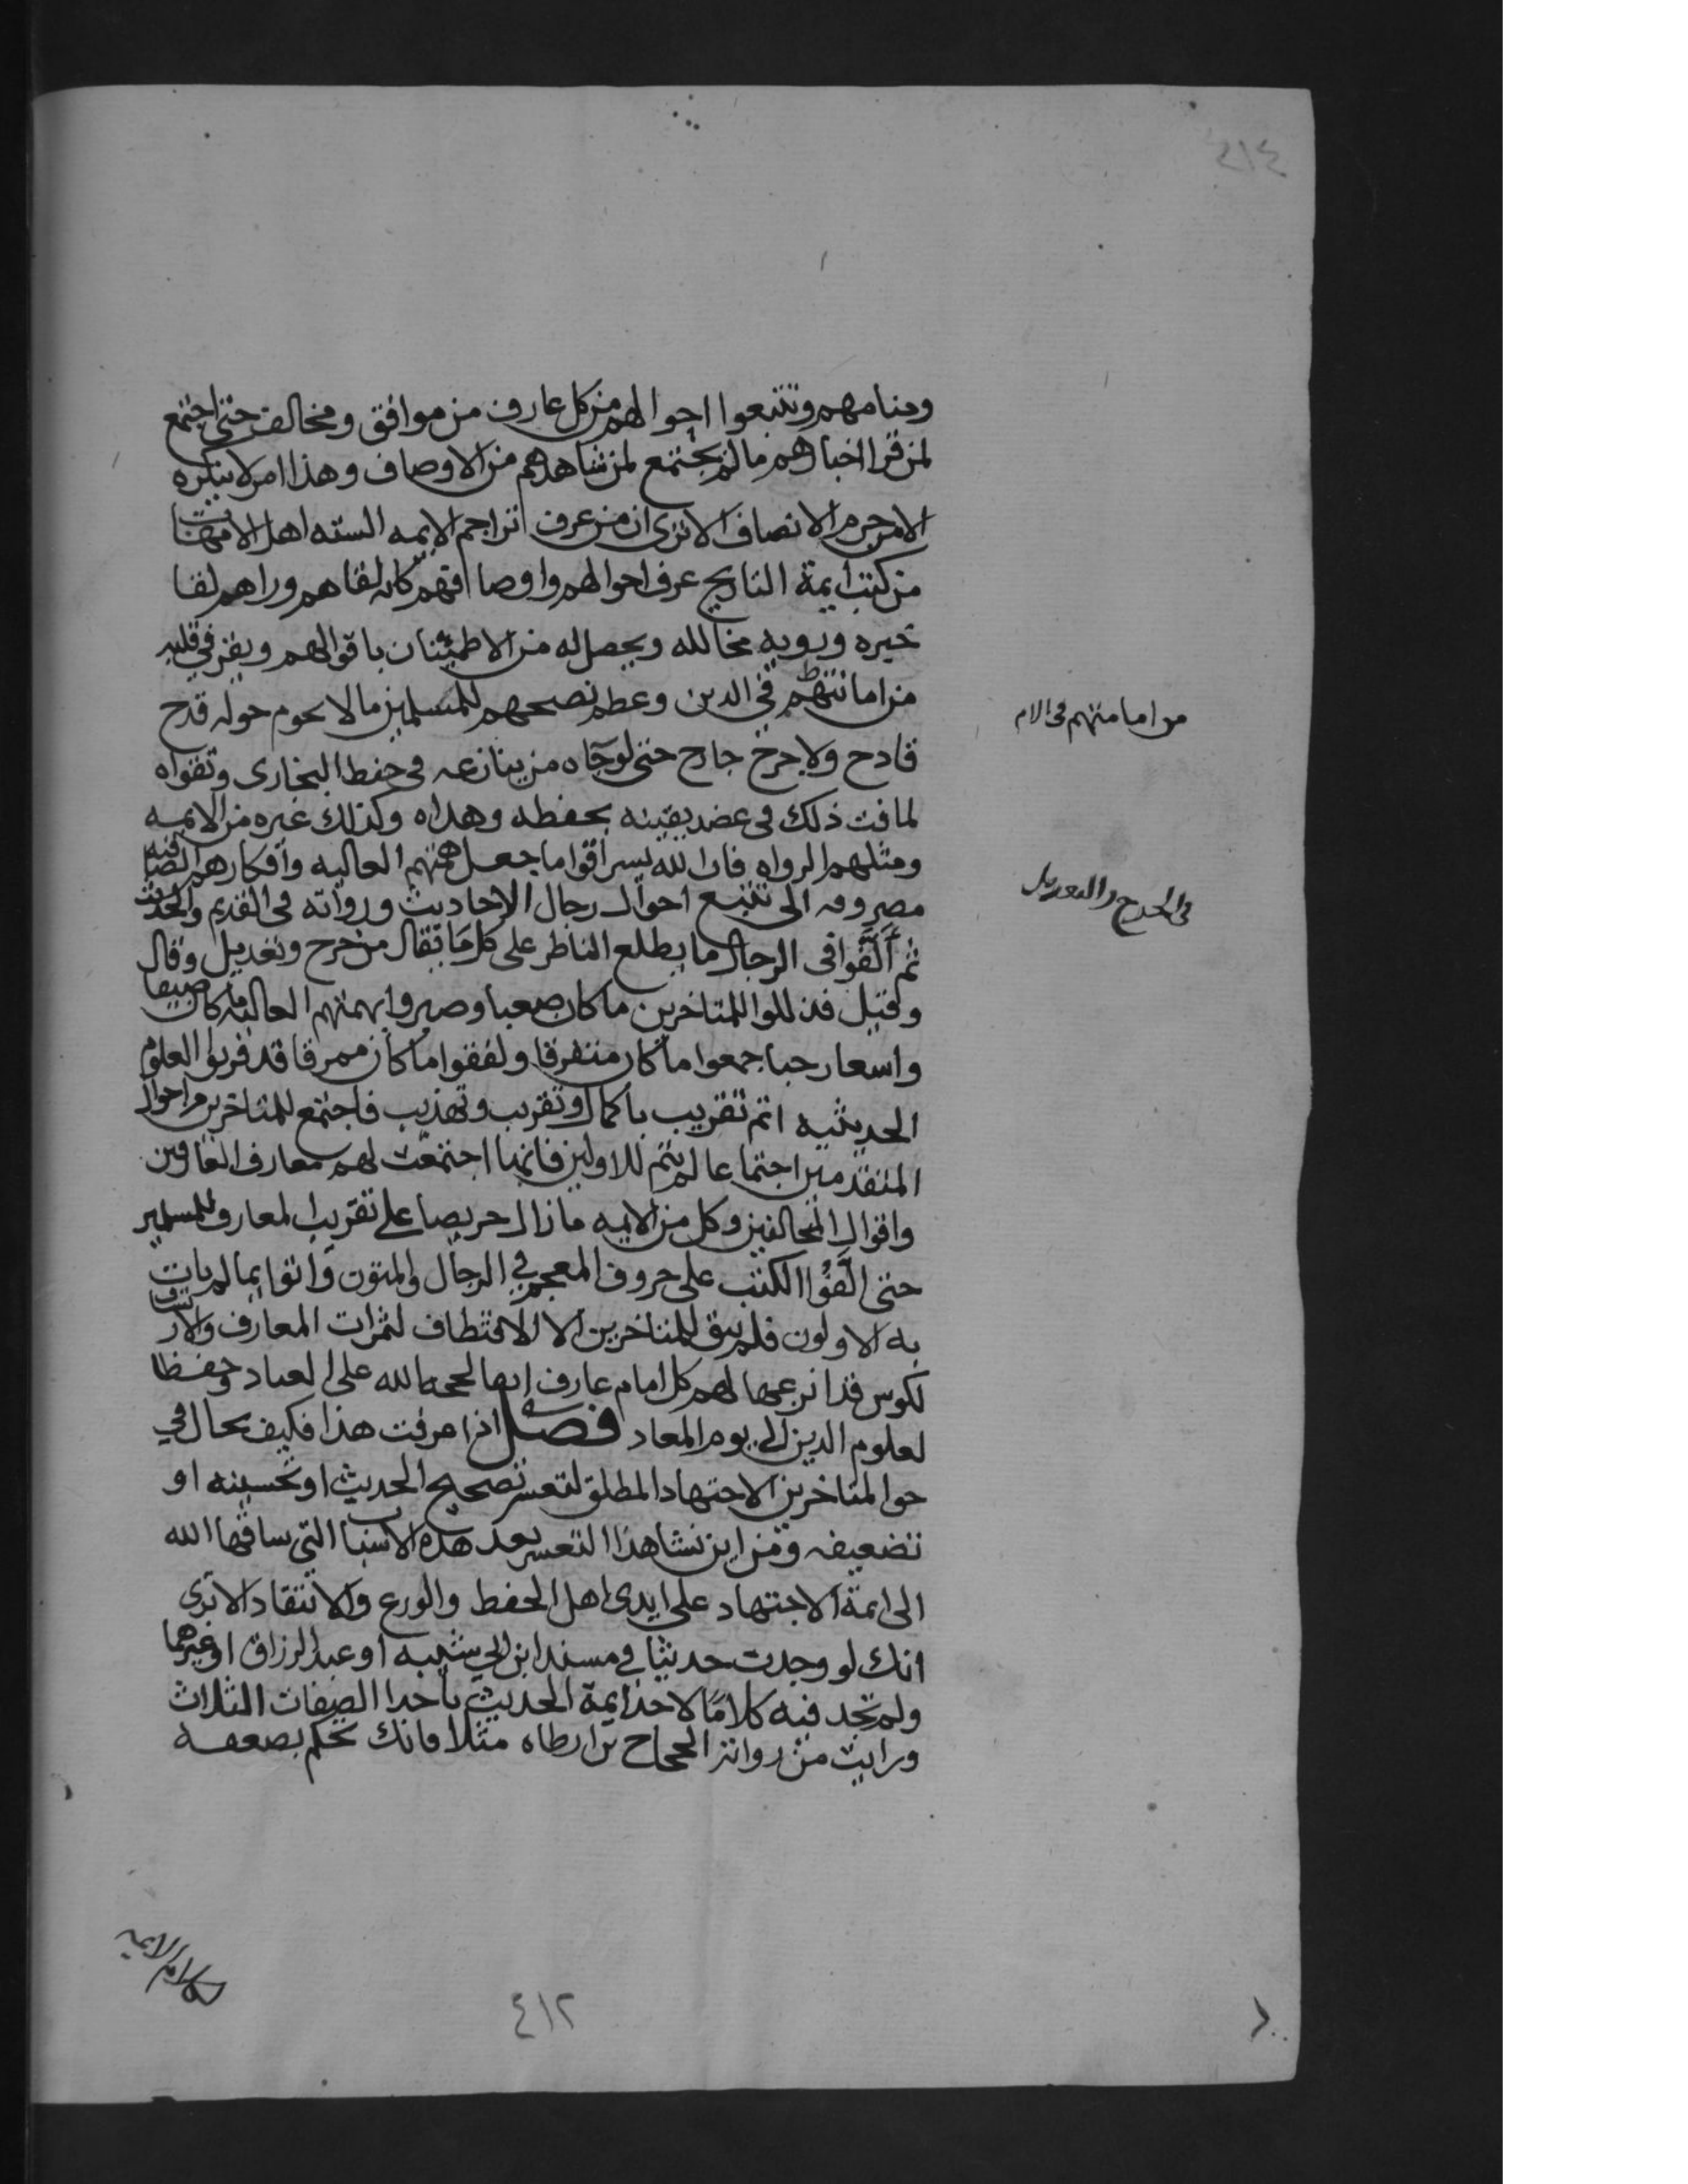 ٤١٤
ومنامهم وتتبعوا احوالهم من كل عارف من موافق ومخالف حتى اجتمع
لمن قرا اخبارهم ما لم يجتمع لمن شاهدهم من الاوصاف وهذا امر لا ينكره
الا من حرم الانصاف الا ترى ان من عرف تراجم الايمه السته اهل الامهات
من كتب ايمة التاريخ عرف احوالهم واوصافهم كانه لقاهم وراهم لقا
خيره ورويه مخالله ويحصل له من الاطمئنان باقوالهم ويقر في قلبه
من امانتهم في الدين وعظم نصحهم للمسلمين ما لا يحوم حوله قدح
من امامتهم فى الام
قادح ولا جرح جارح حتى لو جاه من ينازعه فى حفظ البخارى وتقواه
لما فت ذلك فى عضد يقينه بحفظه وهداه وكذلك غيره من الايمه
ومثلهم الرواه فان الله يسر اقواما جعل همتهم العاليه وافكارهم الصافيه
مصروفه الى تتبع احوال رجال الاحاديث ورواته فى القديم والحديث
فى الجرح والتعديل
ثم الفوا فى الرجال ما يطلع الناظر على كل ما يقال من جرح وتعديل وقال
وقيل فذللوا للمتاخرين ما كان صعبا وصيروا بهمتهم العاليه ما كان ضيقا
واسعا رحبا جمعوا ما كان متفرقا ولفقوا ما كان ممزقا قد قربوا العلوم
الحديثيه اتم تقريب باكمال وتقريب وتهذيب فاجتمع للمتاخرين من احوال
المتقدمين اجتماعا لم يتم للاولين فانها اجتمعت لهم معارف العارفين
واقوال المخالفين وكل من الايمه ما زال حريصا على تقريب المعارف للمسلمين
حتى الفوا الكتب على حروف المعجم في الرجال والمتون واتوا بما لم يات
به الاولون فلم يبق للمتاخرين الا الاقتطاف لثمرات المعارف والارتشاف
لكوس قد اترعها لهم كل امام عارف ابقا لحجه الله على العباد وحفظا
لعلوم الدين الى يوم المعاد فصل اذا عرفت هذا فكيف يحال في
حق المتاخرين الاجتهاد المطلق لتعسر تصحيح الحديث او تحسينه او
تضعيفه ومن اين نشا هذا التعسر بعد هذه الاسباب التى ساقها الله
الى ايمة الاجتهاد على ايدى اهل الحفظ والورع والانتقاد الا ترى
انك لو وجدت حديثا في مسند ابن ابي شيبه او عبد الرزاق او غيرهما
ولم تجد فيه كلاما لاحد ايمة الحديث باحدا الصفات الثلاث
ورايت من رواته الحجاج بن ارطاه مثلا فانك تحكم بضعفه
كلام الايمه
٤١٢